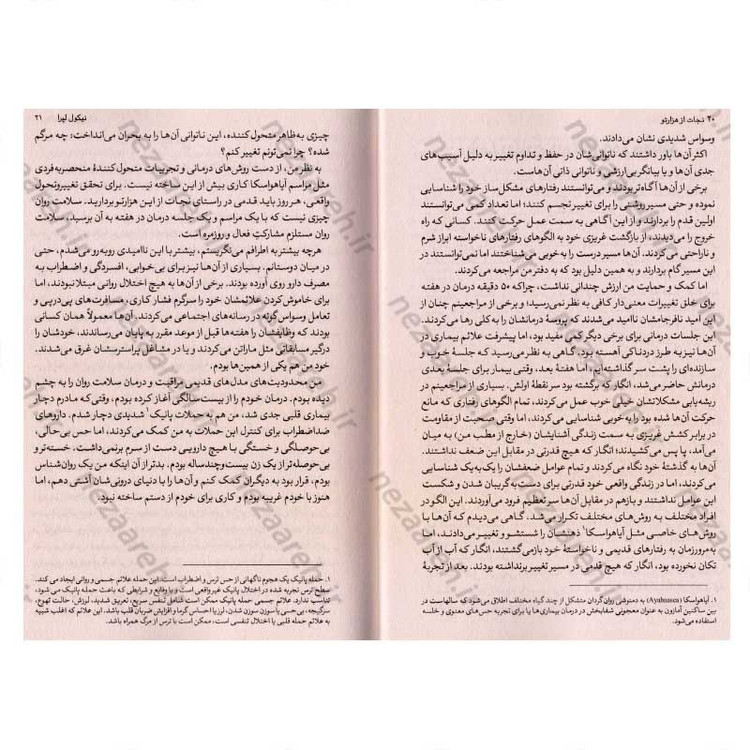 ۲۰ نجات از هزارتو
وسواس شدیدی نشان می‌دادند.
اکثر آن‌ها باور داشتند که ناتوانی‌شان در حفظ و تداوم تغییر به دلیل آسیب‌های
جدی آن‌ها و یا بیانگر بی‌ارزشی و ناتوانی ذاتی آن‌هاست.
برخی از آن‌ها آگاه‌تر بودند و می‌توانستند رفتارهای مشکل‌ساز خود را شناسایی
نموده و حتی مسیر روشنی را برای تغییر تجسم کنند؛ اما تعداد کمی می‌توانستند
اولین قدم را بردارند و از این آگاهی به سمت عمل حرکت کنند. کسانی که راه
خروج را می‌دیدند، از بازگشت غریزی خود به الگوهای رفتارهای ناخواسته ابراز شرم
و ناراحتی می‌کردند. آن‌ها مسیر درست را به‌خوبی می‌شناختند اما نمی‌توانستند در
این مسیر گام بردارند و به همین دلیل بود که به دفتر من مراجعه می‌کردند.
اما کمک و حمایت من ارزش چندانی نداشت، چراکه ۵۰ دقیقه درمان در هفته
برای خلق تغییرات معنی‌دار کافی به نظر نمی‌رسید؛ و برخی از مراجعینم چنان از
این امید نافرجامشان ناامید می‌شدند که پروسهٔ درمانشان را به‌کلی رها می‌کردند.
این جلسات درمانی برای برخی دیگر کمی مفید بود، اما پیشرفت علائم بیماری در
آن‌ها نیز به طرز دردناکی آهسته بود. گاهی به نظر می‌رسید که جلسهٔ خوب و
سازنده‌ای را پشت سر گذاشته‌ایم، اما هفتهٔ بعد، وقتی بیمار برای جلسهٔ بعدی
درمانش حاضر می‌شد، انگار که برگشته بود سر نقطهٔ اولش. بسیاری از مراجعینم در
ریشه‌یابی مشکلاتشان خیلی خوب عمل می‌کردند، تمام الگوهای رفتاری که مانع
حرکت آن‌ها شده بود را به خوبی شناسایی می‌کردند، اما وقتی صحبت از مقاومت
در برابر کشش غریزی به سمت زندگی آشنایشان (خارج از مطب من) به میان
می‌آمد، پا پس می‌کشیدند؛ انگار که هیچ قدرتی در مقابل این ضعف نداشتند.
آن‌ها به گذشتهٔ خود نگاه می‌کردند و تمام عوامل ضعفشان را یک‌به‌یک شناسایی
می‌کردند، اما در زندگی واقعی خود قدرتی برای دست‌به‌گریبان شدن و شکست
این عوامل نداشتند و بازهم در مقابل آن‌ها سر تعظیم فرود می‌آوردند. این الگو در
افراد مختلف به روش‌های مختلف تکرار می‌شد. گاهی می‌دیدم که آن‌ها با
روش‌های خاصی مثل آیاهواسکا۱ ذهنشان را شستشو و تغییر می‌دادند، اما
به‌مرورزمان به رفتارهای قدیمی و ناخواستهٔ خود بازمی‌گشتند، انگار که آب از آب
تکان نخورده بود، انگار که هیچ قدمی در مسیر تغییر برنداشته بودند. بعد از تجربهٔ
۱. آیاهواسکا (Ayahuasca) به دمنوشی روان‌گردان متشکل از چند گیاه مختلف اطلاق می‌شود که سالهاست در
بین ساکنین آمازون به عنوان معجونی شفابخش در درمان بیماری‌ها یا برای تجربه حس‌های معنوی و خلسه
استفاده می‌شود.
نیکول لپرا ۲۱
چیزی به‌ظاهر متحول‌کننده، این ناتوانی آن‌ها را به بحران می‌انداخت: چه مرگم
شده؟ چرا نمی‌تونم تغییر کنم؟
به نظر من، از دست روش‌های درمانی و تجربیات متحول‌کنندهٔ منحصربه‌فردی
مثل مراسم آیاهواسکا کاری بیش از این ساخته نیست. برای تحقق تغییروتحول
واقعی، هر روز باید قدمی در راستای نجات از این هزارتو بردارید. سلامت روان
چیزی نیست که با یک مراسم و یک جلسه درمان در هفته به آن برسید، سلامت
روان مستلزم مشارکتِ فعال و روزمره است.
هرچه بیشتر به اطرافم می‌نگریستم، بیشتر با این ناامیدی روبه‌رو می‌شدم، حتی
در میان دوستانم. بسیاری از آن‌ها نیز برای بی‌خوابی، افسردگی و اضطراب به
مصرف دارو روی آورده بودند. برخی از آن‌ها به هیچ اختلال روانی مبتلا نبودند، اما
برای خاموش‌کردن علائمشان خود را سرگرم فشار کاری، مسافرت‌های پی‌درپی و
تعامل وسواس‌گونه در رسانه‌های اجتماعی می‌کردند. آن‌ها معمولاً همان کسانی
بودند که وظایفشان را هفته‌ها قبل از موعد مقرر به پایان می‌رساندند، خودشان را
درگیر مسابقاتی مثل ماراتن می‌کردند و یا در مشاغل پراسترسشان غرق می‌شدند.
خود من هم یکی از همین‌ها بودم.
من محدودیت‌های مدل‌های قدیمی مراقبت و درمان سلامت روان را به چشم
دیده بودم. درمان خودم را از بیست‌سالگی آغاز کرده بودم، وقتی‌که مادرم دچار
بیماری قلبی جدی شد، من هم به حملات پانیک۱ شدیدی دچار شدم. داروهای
ضداضطراب برای کنترل این حملات به من کمک می‌کردند، اما حس بی‌حالی،
بی‌حوصلگی و خستگی با هیچ دارویی دست از سرم برنمی‌داشت. خسته‌تر و
بی‌حوصله‌تر از یک زن بیست‌وچندساله بودم. بدتر از آن اینکه من یک روان‌شناس
بودم، قرار بود به دیگران کمک کنم و آن‌ها را با دنیای درونی‌شان آشتی دهم، اما
هنوز با خودم غریبه بودم و کاری برای خودم از دستم ساخته نبود.
۱. حمله پانیک یک هجوم ناگهانی از حس ترس و اضطراب است. این حمله علائم جسمی و روانی ایجاد می کند.
سطح ترس تجربه شده در اختلال پانیک غیر واقعی است و با وقایع و شرایطی که باعث حمله پانیک می‌شود،
تناسب ندارد. علائم جسمی حمله پانیک ممکن است شامل تنفس سریع، تعریق شدید، لرزش، حالت تهوع،
سرگیجه، بی‌حسی یا سوزن سوزن شدن، لرز یا احساس گرما و افزایش ضربان قلب باشد. این علائم که اغلب شبیه
به علائم حمله قلبی یا اختلال تنفسی است، ممکن است با ترس از مرگ همراه باشد.
nezaareh.ir